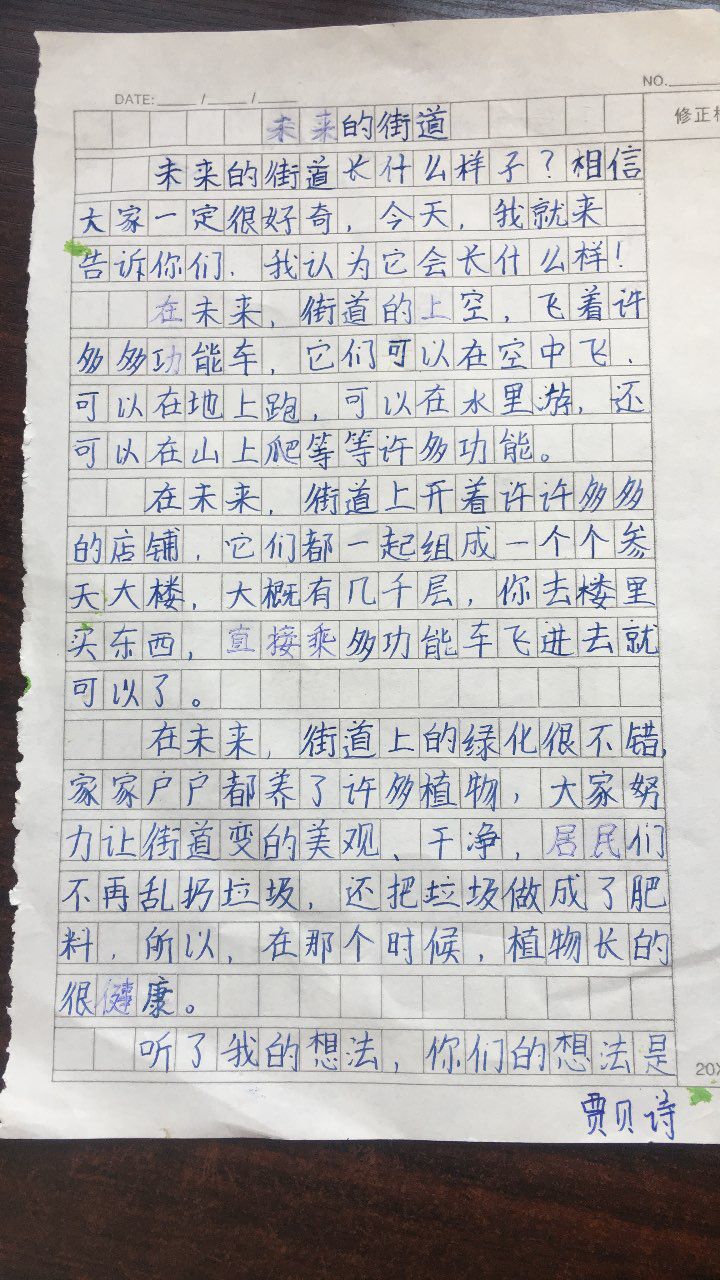 NO.
DATE: / /
修正
未来的街道
未来的街道长什么样子？相信
大家一定很好奇，今天，我就来
告诉你们．我认为它会长什么样！
在未来，街道的上空，飞着许
多多功能车，它们可以在空中飞．
可以在地上跑，可以在水里游，还
可以在山上爬等等许多功能。
在未来，街道上开着许许多多
的店铺，它们都一起组成一个个参
天大楼，大概有几千层，你去楼里
买东西，直接乘多功能车飞进去就
可以了。
在未来，街道上的绿化很不错，
家家户户都养了许多植物，大家努
力让街道变的美观、干净，居民们
不再乱扔垃圾，还把垃圾做成了肥
料，所以，在那个时候，植物长的
很健康。
听了我的想法，你们的想法是
20
贾贝诗